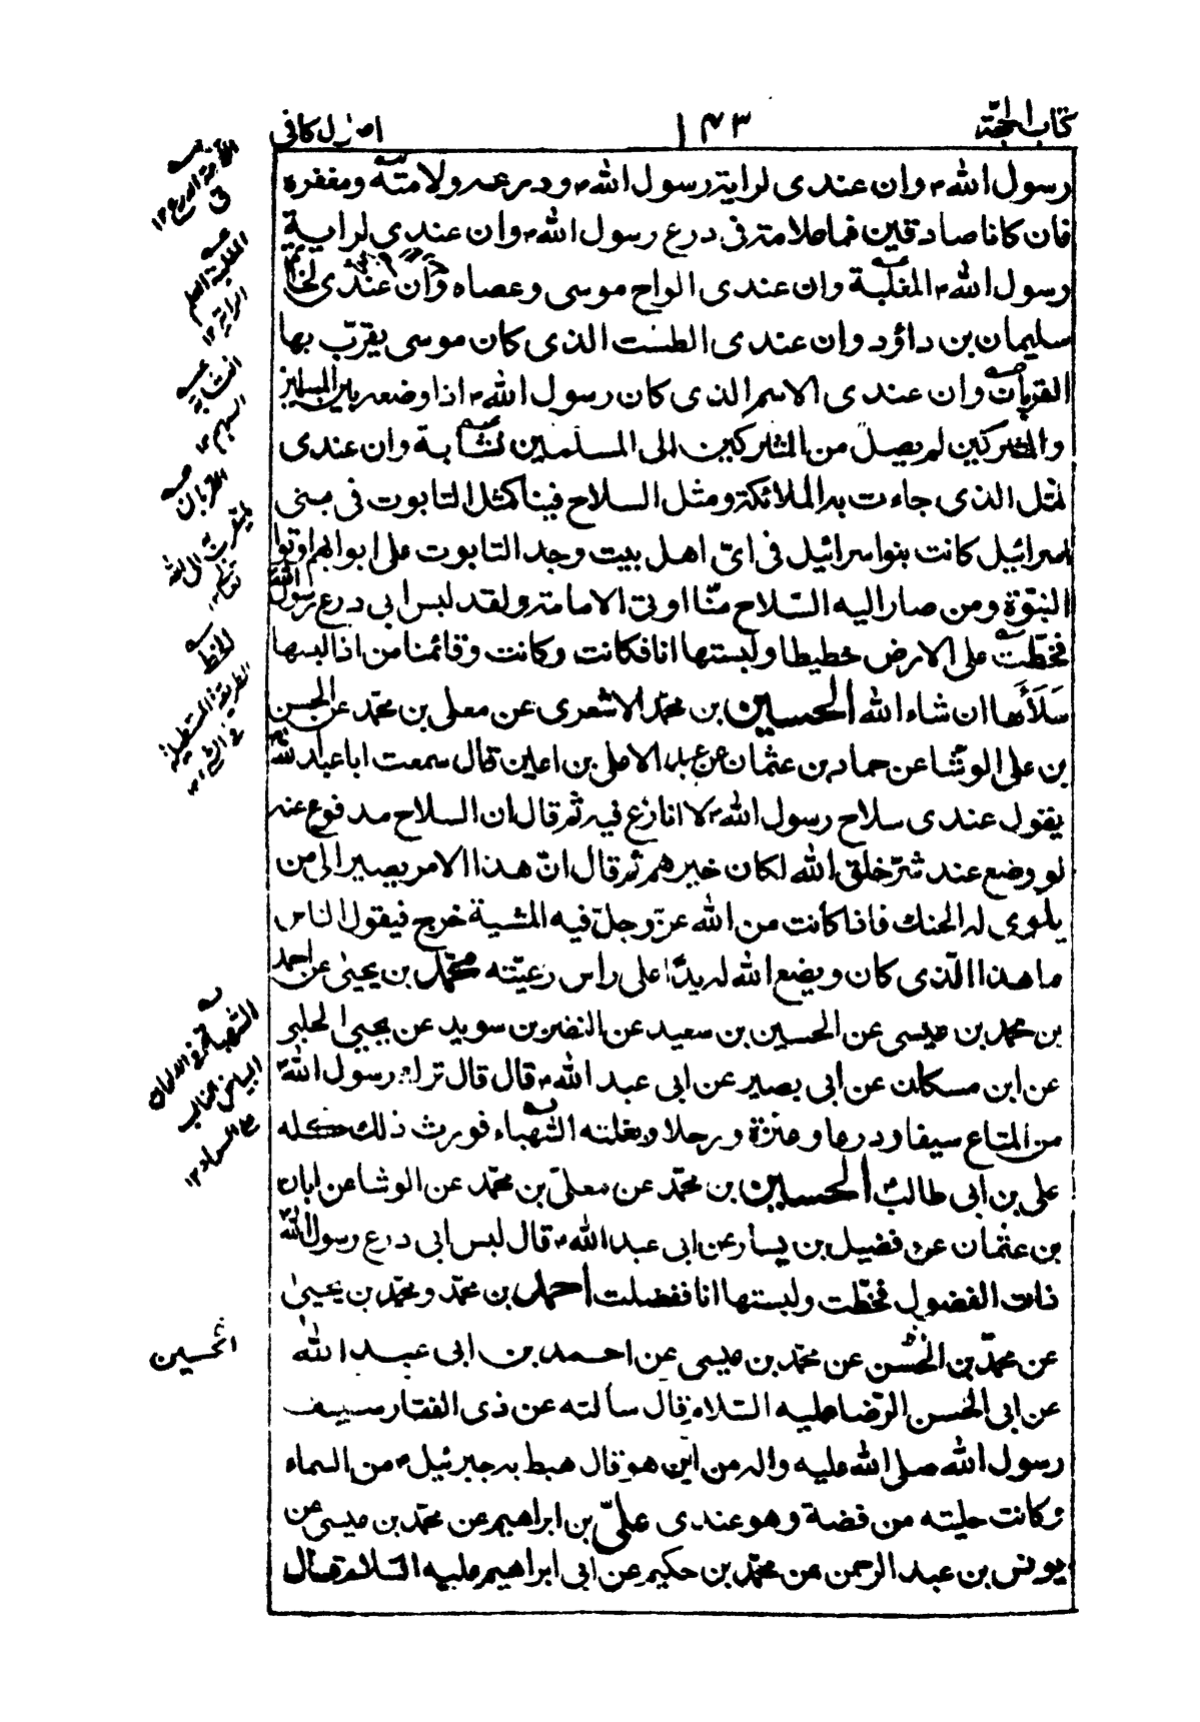 كتاب الحجة
١٤٣
اصول كافى
رسول الله ص وان عندى لراية رسول الله ص ودرعه ولامته ومغفره
فان كانا صادقين فما علامته فى درع رسول الله ص وان عندي لراية
رسول الله ص المغلبة وان عندى الواح موسى وعصاه وان عندى لخاتم
سليمان بن داؤد وان عندى الطست الذى كان موسى يقرّب بها
القربان وان عندى الاسم الذى كان رسول الله ص اذا وضعه بين المسلمين
والمشركين لم يصل من المشركين الى المسلمين نشّابة وان عندى
لمثل الذى جاءت به الملائكة ومثل السلاح فينا كمثل التابوت فى بنى
اسرائيل كانت بنو اسرائيل فى اىّ اهل بيت وجد التابوت على ابوابهم اوتوا
النبوّة ومن صار اليه السّلاح منّا اوتى الامامة ولقد لبس ابى درع رسول الله
فخطّت على الارض خطيطا ولبستها انا فكانت وكانت وقائمنا من اذا لبسها
سَلَأَها ان شاء الله الحسين بن محمّد الاشعرى عن معلى بن محمّد عن الحسن
بن على الوشّا عن حماد بن عثمان عن عبد الاعلى بن اعين قال سمعت ابا عبد الله
يقول عندى سلاح رسول الله ص لا انازع فيه ثم قال ان السلاح مدفوع عنه
لو وضع عند شرّ خلق الله لكان خيرهم ثم قال انّ هذا الامر يصير الى من
يلوى له الحنك فاذا كانت من الله عزّ وجلّ فيه المشية خرج فيقول الناس
ما هذا الّذى كان ويضع الله له يدًا على راس رعيّته محمّد بن يحيىٰ عن احمد
بن محمد بن عيسى عن الحسين بن سعيد عن النضر بن سويد عن يحيى الحلبى
عن ابن مسكان عن ابى بصير عن ابى عبد الله ع قال قال ترك رسول الله
من المتاع سيفا ودرعا وعنزة ورحلا وبغلته الشهباء فورث ذلك كله
على بن ابى طالب الحسين بن محمّد عن معلىّ بن محمّد عن الوشا عن ابان
بن عثمان عن فضيل بن يسار عن ابى عبد الله ع قال لبس ابى درع رسول الله
ذات الفضول فخطّت ولبستها انا ففضلت احمد بن محمّد ومحمّد بن يحيىٰ
عن محمّد بن الحسن عن محمّد بن عيسى عن احمد بن ابى عبد الله
عن ابى الحسن الرّضا عليه السّلام قال سألته عن ذى الفقار سيف
رسول الله صلى الله عليه واله من اين هو قال هبط به جبرئيل ع من السماء
وكانت حليته من فضة وهو عندى علىّ بن ابراهيم عن محمّد بن عيسى عن
يونس بن عبد الرحمن عن محمّد بن حكيم عن ابى ابراهيم عليه السّلام قال
المغلبة اسم
الراية ١٢
السهم ١٢
القربان
الخط
الطريقة المستطيلة
الشهبة فى الالوان
البياض الغالب
على السواد ١٢
الحسين